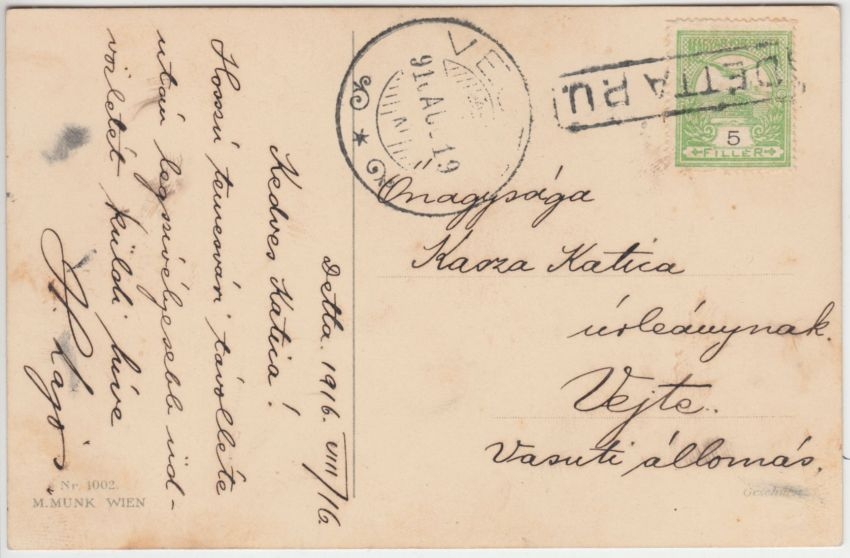 Detta. 1916. VIII/16.
Kedves Katica!
Hosszú temesvári távolléte
után legszivélyesebb üd-
vözletét küldi híve
Nr. 1002.
M. MUNK WIEN
VEJ
916 AUG 19
DETTA P.U.
5
FILLÉR
Őnagysága
Kasza Katica
úrleánynak.
Vejte.
Vasuti állomás.
Geschützt